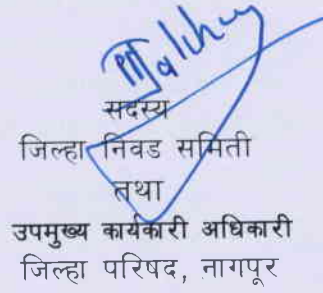 सदस्य
जिल्हा निवड समिती
तथा
उपमुख्य कार्यकारी अधिकारी
जिल्हा परिषद, नागपूर